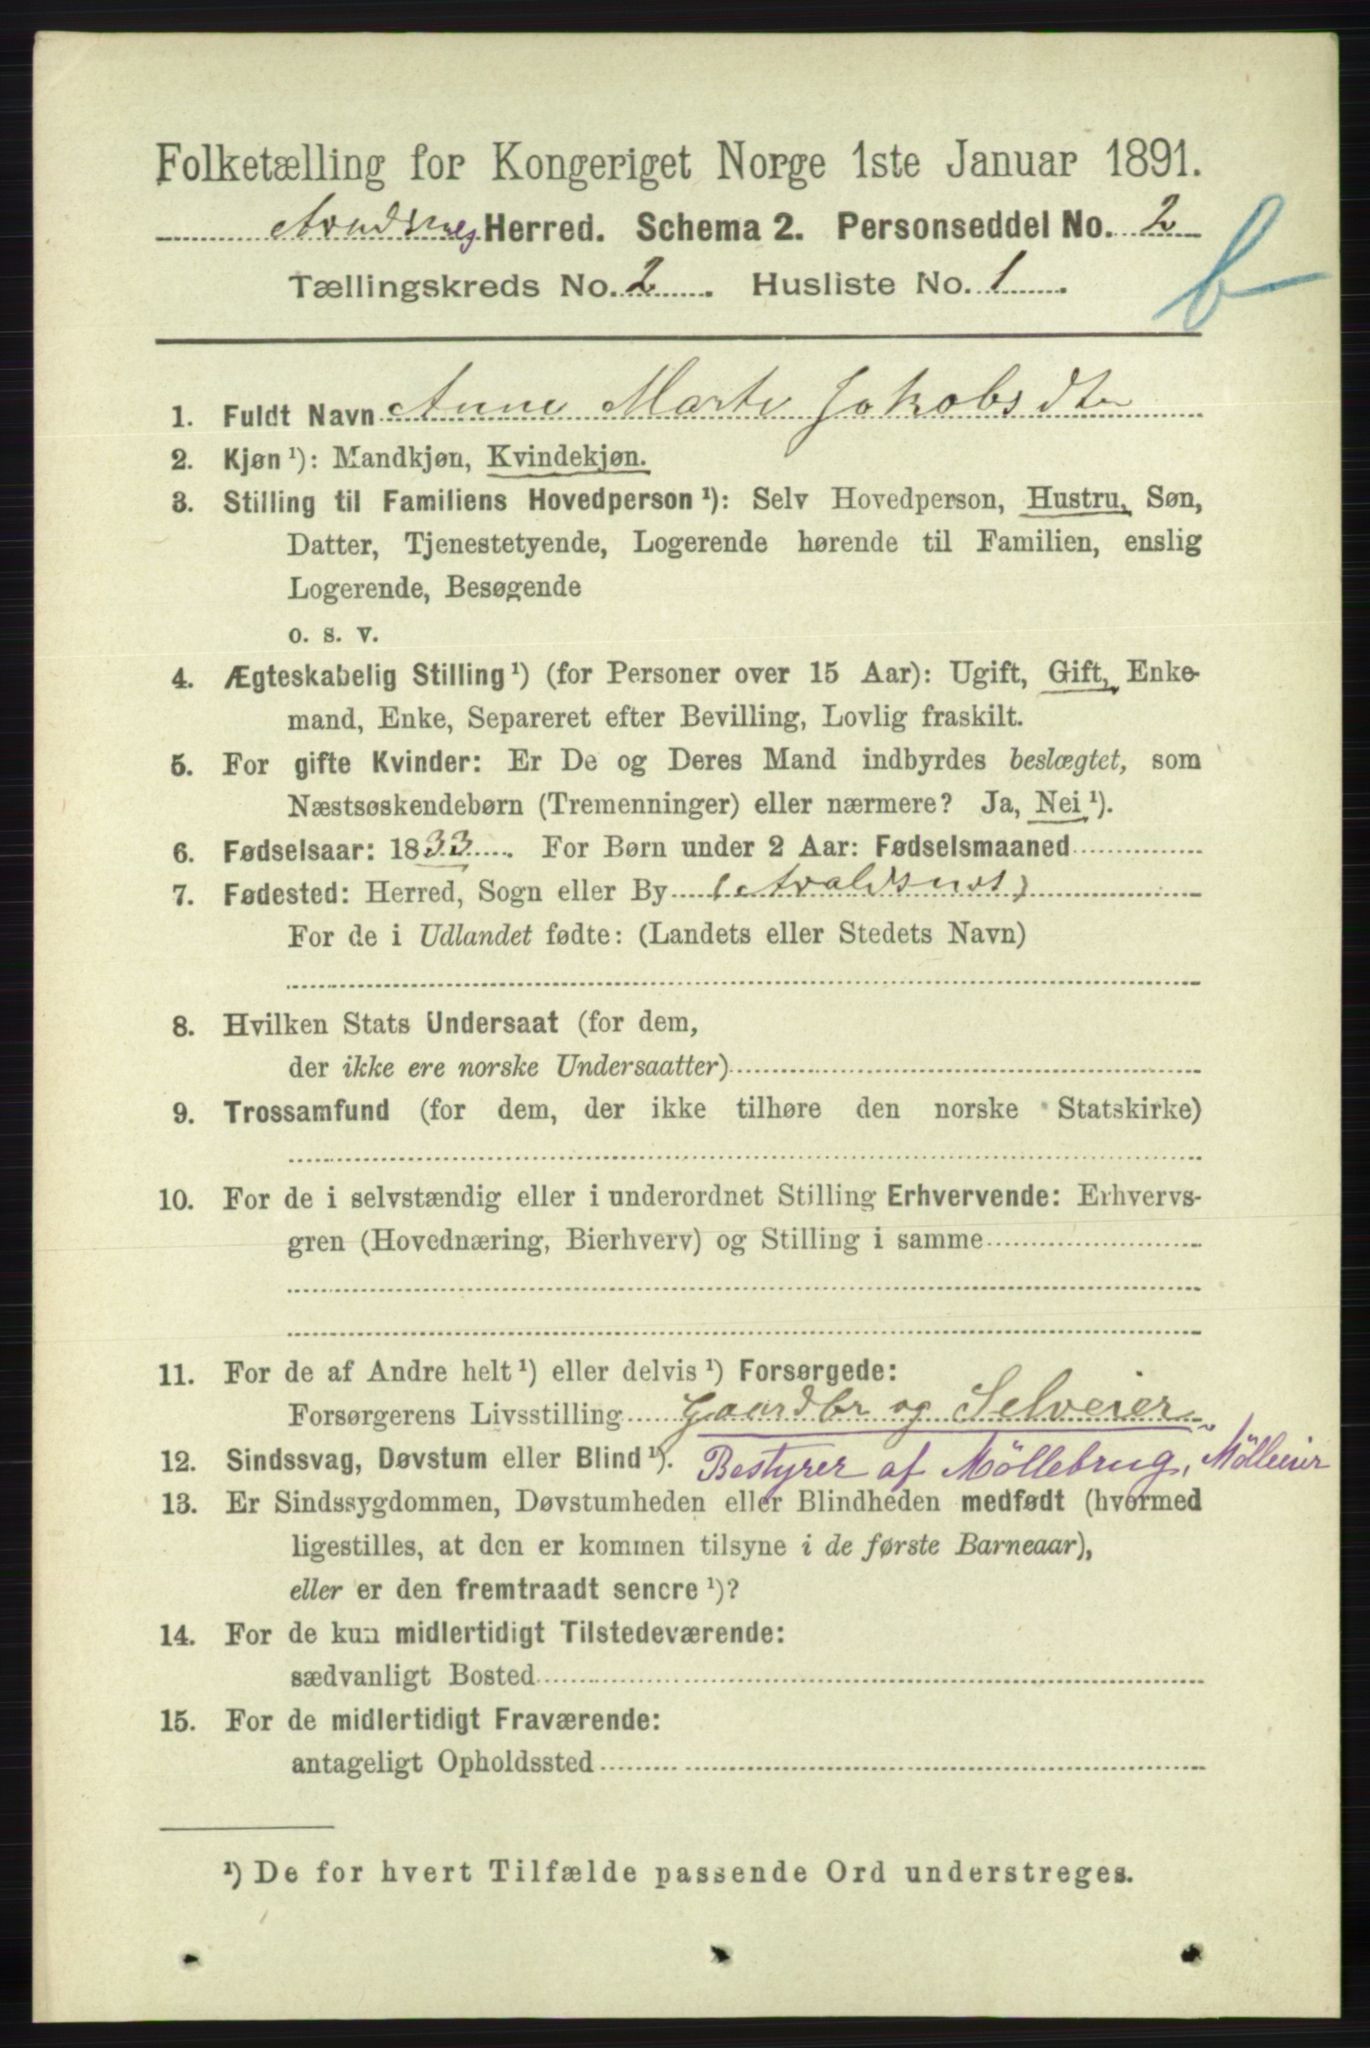 Folketælling for Kongeriget Norge 1ste Januar 1891.
Avaldsnes Herred. Schema 2. Personseddel No. 2
Tællingskreds No. 2. Husliste No. 1.
b
1. Fuldt Navn Anne Marte Jakobsdtr
2. Kjøn ¹): Mandkjøn, Kvindekjøn.
3. Stilling til Familiens Hovedperson ¹): Selv Hovedperson, Hustru, Søn,
Datter, Tjenestetyende, Logerende hørende til Familien, enslig
Logerende, Besøgende
o. s. v.
4. Ægteskabelig Stilling ¹) (for Personer over 15 Aar): Ugift, Gift, Enke-
mand, Enke, Separeret efter Bevilling, Lovlig fraskilt.
5. For gifte Kvinder: Er De og Deres Mand indbyrdes beslægtet, som
Næstsøskendebørn (Tremenninger) eller nærmere? Ja, Nei ¹).
6. Fødselsaar: 1833. For Børn under 2 Aar: Fødselsmaaned
7. Fødested: Herred, Sogn eller By (Avaldsnes)
For de i Udlandet fødte: (Landets eller Stedets Navn)
8. Hvilken Stats Undersaat (for dem,
der ikke ere norske Undersaatter)
9. Trossamfund (for dem, der ikke tilhøre den norske Statskirke)
10. For de i selvstændig eller i underordnet Stilling Erhvervende: Erhvervs-
gren (Hovednæring, Bierhverv) og Stilling i samme
11. For de af Andre helt ¹) eller delvis ¹) Forsørgede:
Forsørgerens Livsstilling Gaardbr og Selveier
12. Sindssvag, Døvstum eller Blind ¹). Bestyrer af Möllebrug, Mölleier
13. Er Sindssygdommen, Døvstumheden eller Blindheden medfødt (hvormed
ligestilles, at den er kommen tilsyne i de første Barneaar),
eller er den fremtraadt senere ¹)?
14. For de kun midlertidigt Tilstedeværende:
sædvanligt Bosted
15. For de midlertidigt Fraværende:
antageligt Opholdssted
¹) De for hvert Tilfælde passende Ord understreges.